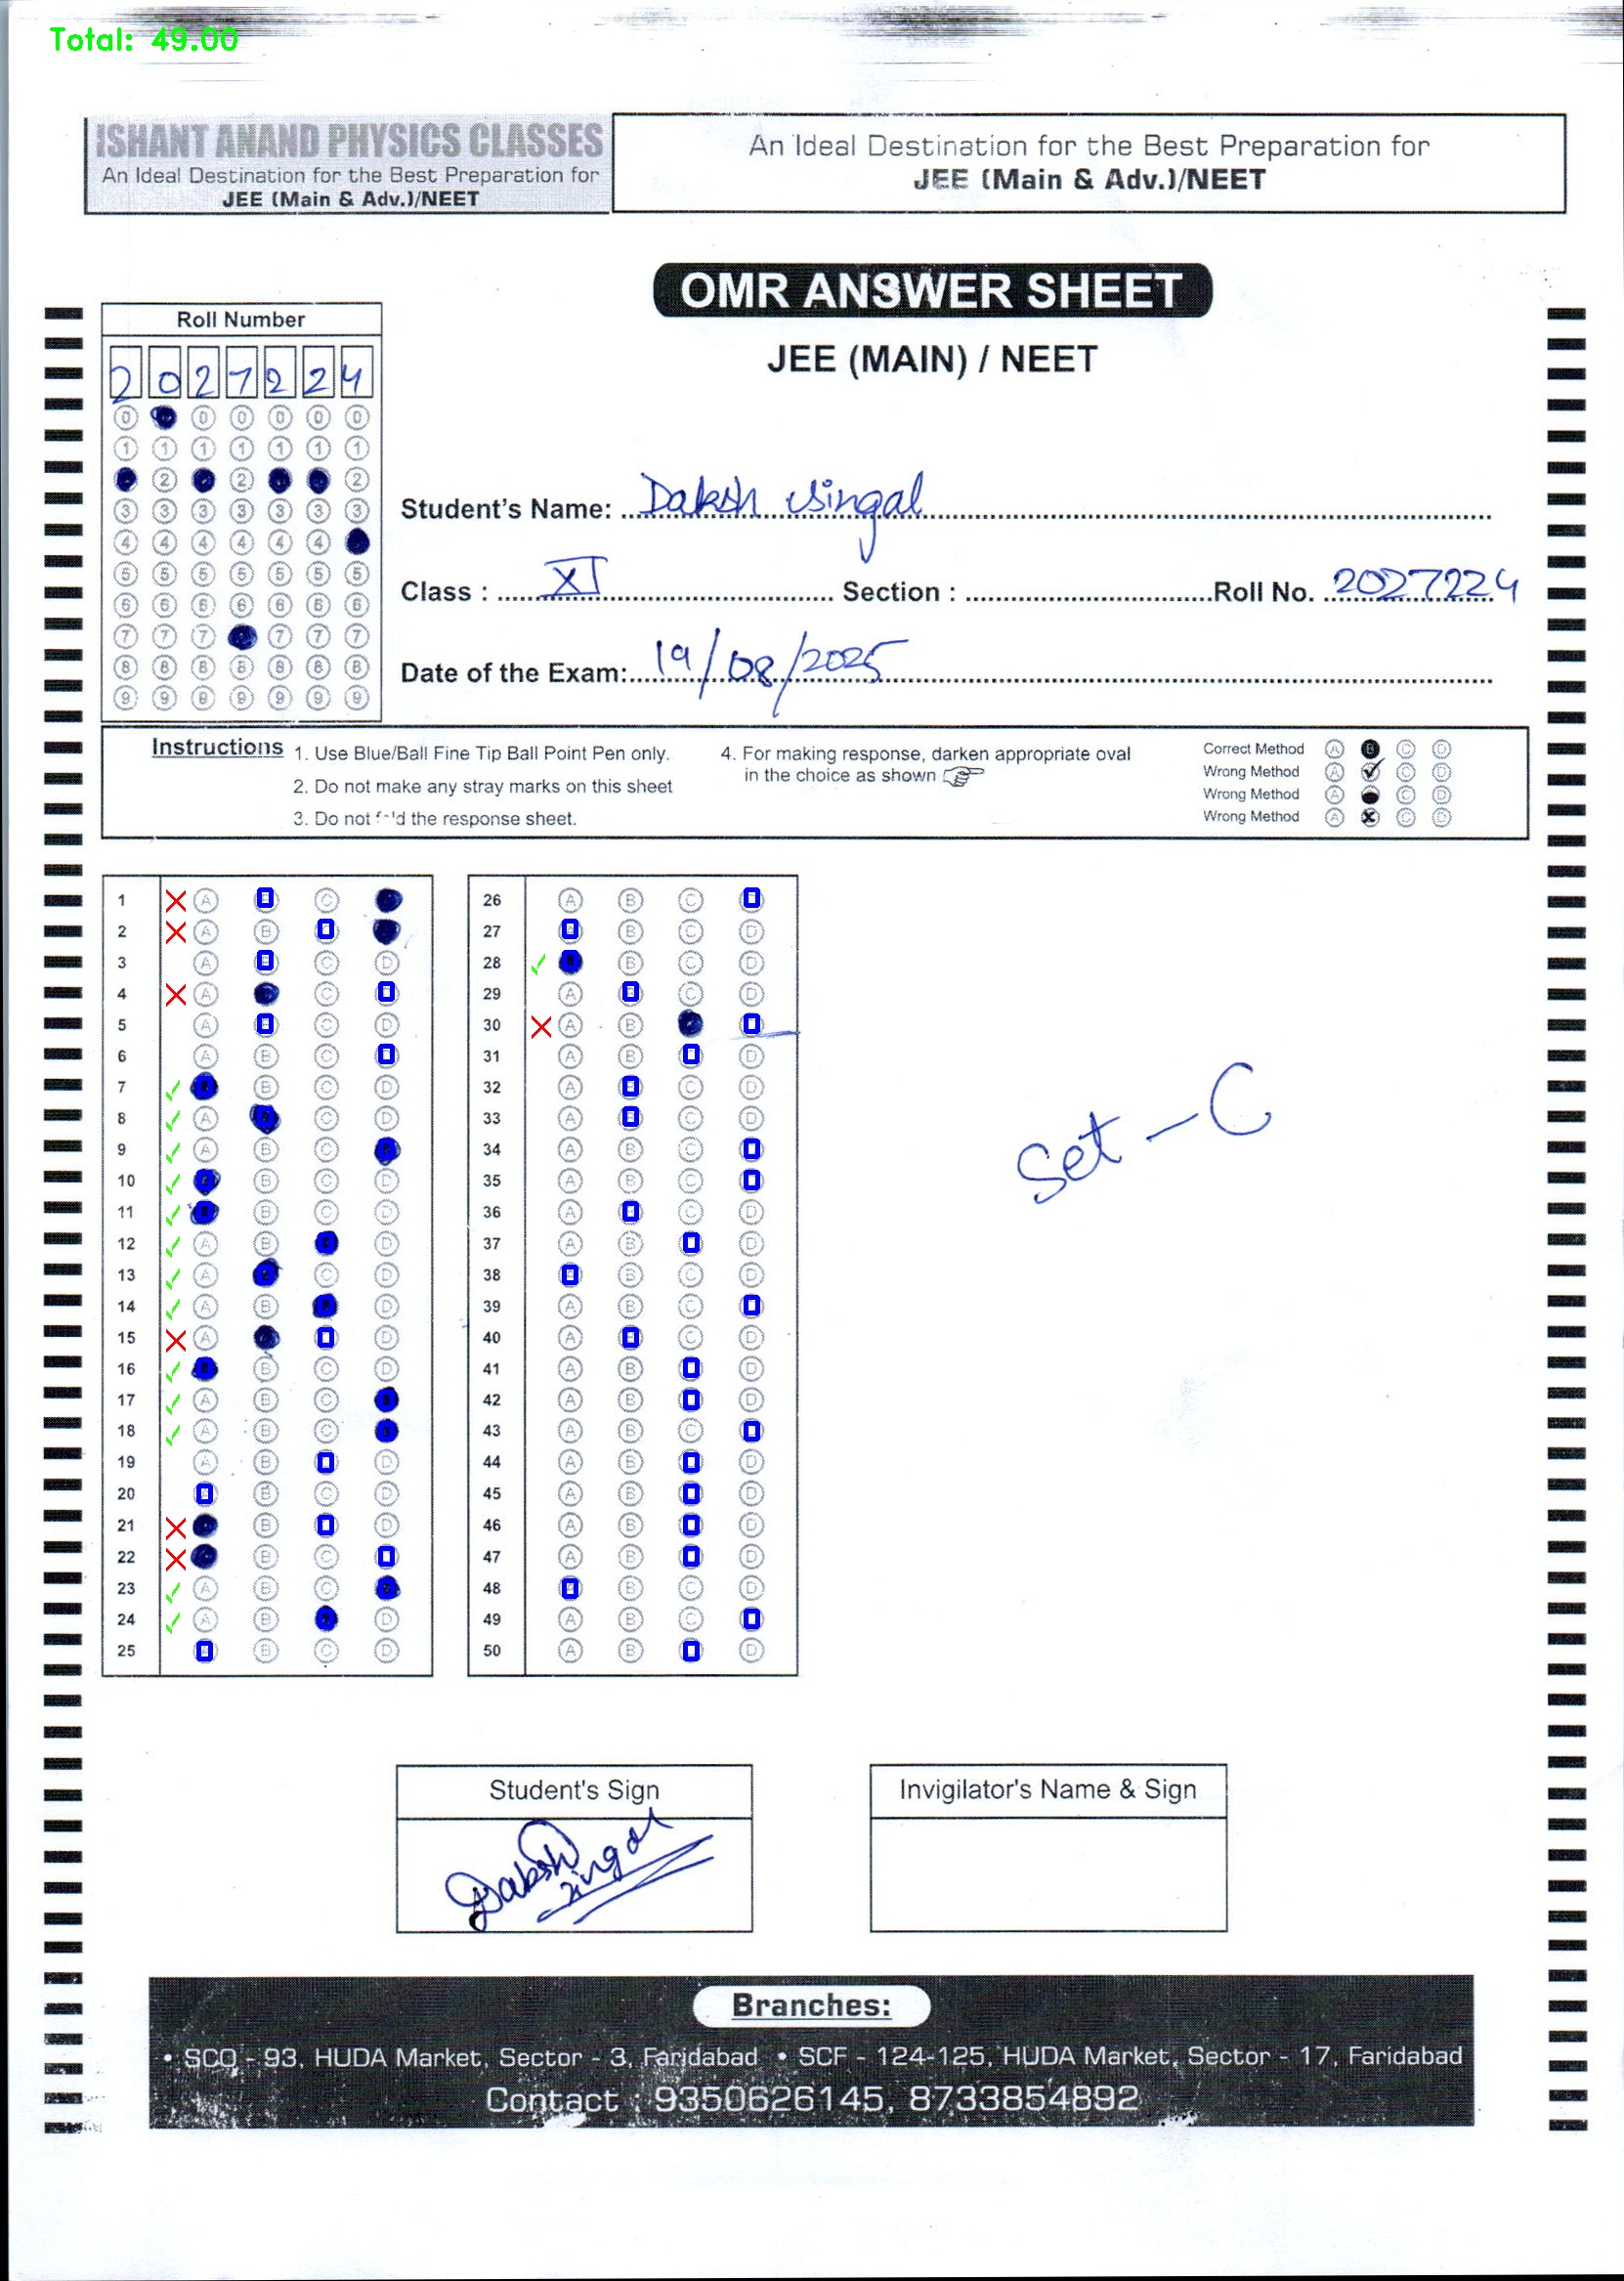 Total: 49.00
ISHANT ANAND PHYSICS CLASSES
An Ideal Destination for the Best Preparation for
JEE (Main & Adv.)/NEET
An Ideal Destination for the Best Preparation for
JEE (Main & Adv.)/NEET
OMR ANSWER SHEET
JEE (MAIN) / NEET
Roll Number
2 0 2 7 2 2 4
0 0 0 0 0 0
1 1 1 1 1 1 1
2 2 2
3 3 3 3 3 3 3
4 4 4 4 4 4
5 5 5 5 5 5 5
6 6 6 6 6 6 6
7 7 7 7 7 7
8 8 8 8 8 8 8
9 9 9 9 9 9 9
Student's Name: Daksh Singal
Class : XI Section : Roll No. 2027224
Date of the Exam: 19/08/2025
Instructions 1. Use Blue/Ball Fine Tip Ball Point Pen only.
2. Do not make any stray marks on this sheet
3. Do not the response sheet.
4. For making response, darken appropriate oval
in the choice as shown
Correct Method A B C D
Wrong Method A C D
Wrong Method A C D
Wrong Method A C D
1 A C
2 A B
3 A C D
4 A C
5 A C D
6 A B C
7 B C D
8 A C D
9 A B C
10 B C D
11 B C D
12 A B D
13 A C D
14 A B D
15 A D
16 B C D
17 A B C
18 A B C
19 A B D
20 B C D
21 B D
22 B C
23 A B C
24 A B D
25 B C D
26 A B C
27 B C D
28 B C D
29 A C D
30 A B
31 A B D
32 A C D
33 A C D
34 A B C
35 A B C
36 A C D
37 A B D
38 B C D
39 A B C
40 A C D
41 A B D
42 A B D
43 A B C
44 A B D
45 A B D
46 A B D
47 A B D
48 B C D
49 A B C
50 A B D
Set - C
Student's Sign
Daksh Singal
Invigilator's Name & Sign
Branches:
• SCO - 93, HUDA Market, Sector - 3, Faridabad • SCF - 124-125, HUDA Market, Sector - 17, Faridabad
Contact : 9350626145, 8733854892